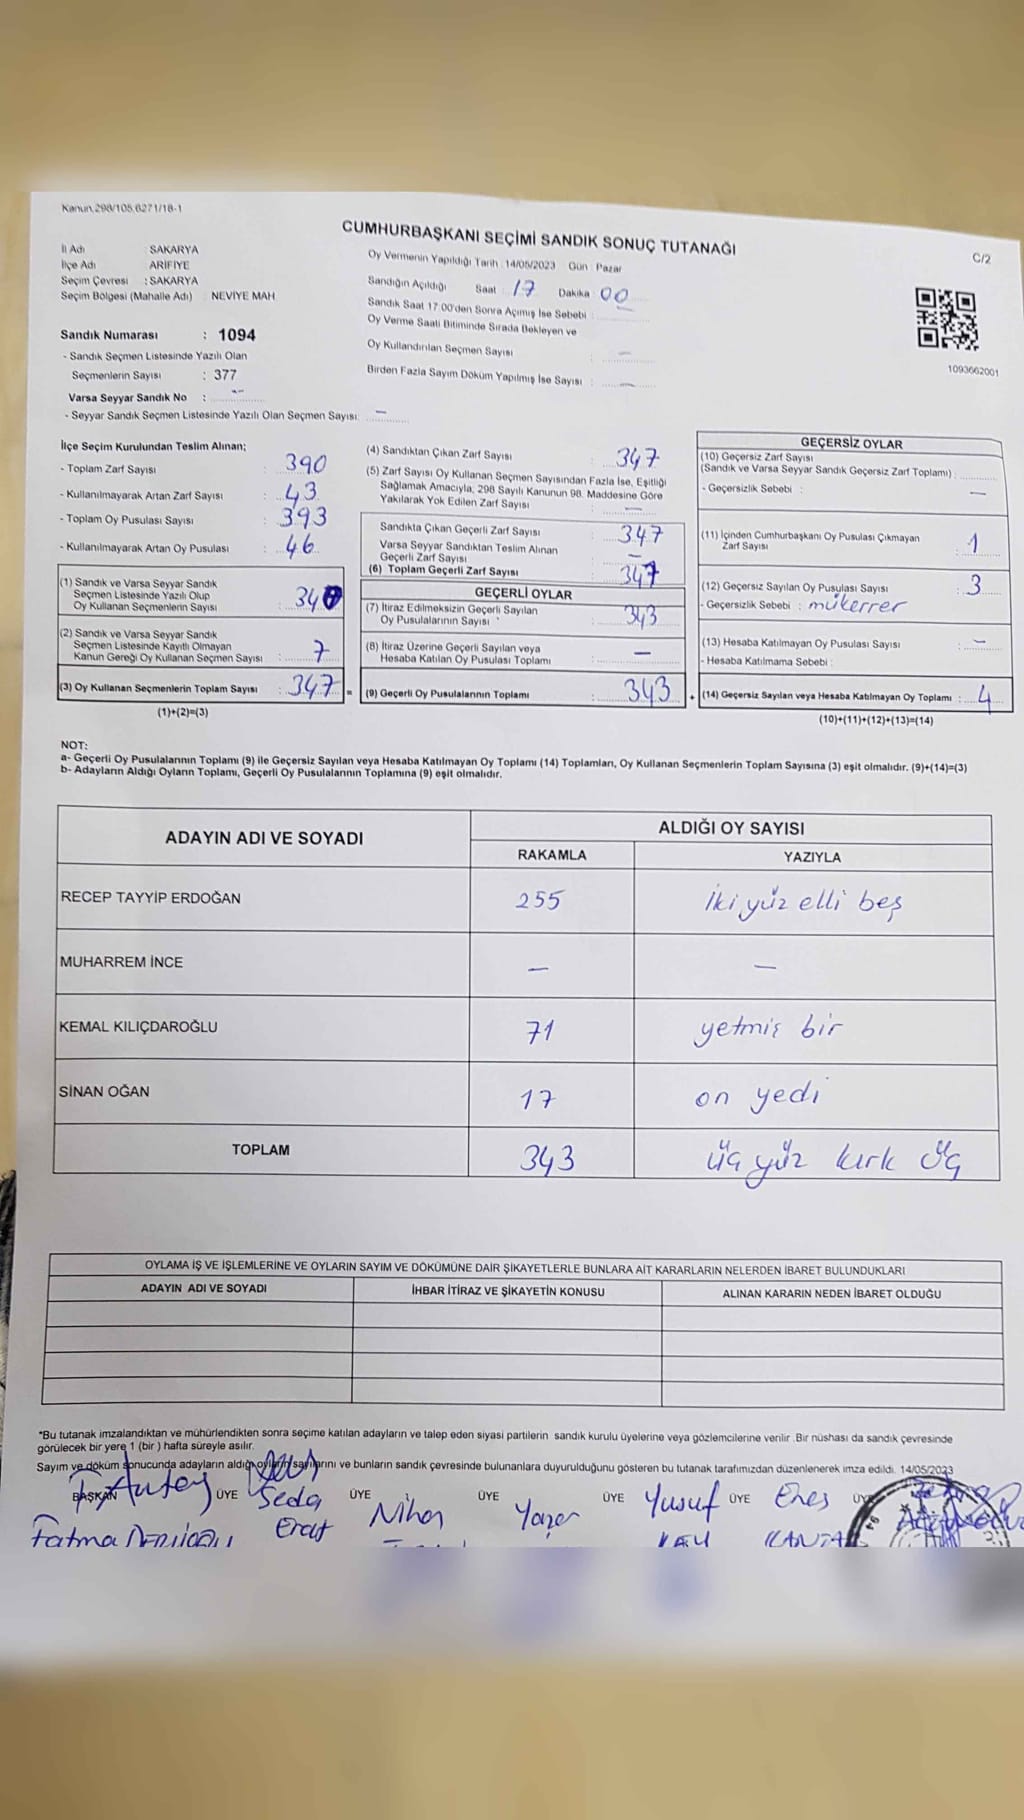 Kanun.298/105,6271/18-1
CUMHURBAŞKANI SEÇİMİ SANDIK SONUÇ TUTANAĞI
C/2
İl Adı : SAKARYA
İlçe Adı ARİFİYE
Seçim Çevresi : SAKARYA
Seçim Bölgesi (Mahalle Adı) : NEVİYE MAH
Oy Vermenin Yapıldığı Tarih : 14/05/2023 Gün : Pazar
Sandığın Açıldığı Saat : 17 Dakika : 00
Sandık Saat 17:00'den Sonra Açımış İse Sebebi : —
Oy Verme Saati Bitiminde Sırada Bekleyen ve
Oy Kullandırılan Seçmen Sayısı : —
Birden Fazla Sayım Döküm Yapılmış İse Sayısı : —
1093662001
Sandık Numarası : 1094
- Sandık Seçmen Listesinde Yazılı Olan
Seçmenlerin Sayısı : 377
Varsa Seyyar Sandık No : —
- Seyyar Sandık Seçmen Listesinde Yazılı Olan Seçmen Sayısı: —
İlçe Seçim Kurulundan Teslim Alınan;
- Toplam Zarf Sayısı : 390
- Kullanılmayarak Artan Zarf Sayısı : 43
- Toplam Oy Pusulası Sayısı : 393
- Kullanılmayarak Artan Oy Pusulası : 46
(1) Sandık ve Varsa Seyyar Sandık
Seçmen Listesinde Yazılı Olup
Oy Kullanan Seçmenlerin Sayısı : 340
(2) Sandık ve Varsa Seyyar Sandık
Seçmen Listesinde Kayıtlı Olmayan
Kanun Gereği Oy Kullanan Seçmen Sayısı : 7
(3) Oy Kullanan Seçmenlerin Toplam Sayısı : 347 =
(1)+(2)=(3)
(4) Sandıktan Çıkan Zarf Sayısı : 347
(5) Zarf Sayısı Oy Kullanan Seçmen Sayısından Fazla İse, Eşitliği
Sağlamak Amacıyla, 298 Sayılı Kanunun 98. Maddesine Göre
Yakılarak Yok Edilen Zarf Sayısı : —
Sandıkta Çıkan Geçerli Zarf Sayısı : 347
Varsa Seyyar Sandıktan Teslim Alınan
Geçerli Zarf Sayısı : —
(6) Toplam Geçerli Zarf Sayısı : 347
GEÇERLİ OYLAR
(7) İtiraz Edilmeksizin Geçerli Sayılan
Oy Pusulalarının Sayısı : 343
(8) İtiraz Üzerine Geçerli Sayılan veya
Hesaba Katılan Oy Pusulası Toplamı : —
(9) Geçerli Oy Pusulalarının Toplamı : 343 +
GEÇERSİZ OYLAR
(10) Geçersiz Zarf Sayısı
(Sandık ve Varsa Seyyar Sandık Geçersiz Zarf Toplamı) :
- Geçersizlik Sebebi : —
(11) İçinden Cumhurbaşkanı Oy Pusulası Çıkmayan
Zarf Sayısı : 1
(12) Geçersiz Sayılan Oy Pusulası Sayısı : 3
- Geçersizlik Sebebi : mükerrer
(13) Hesaba Katılmayan Oy Pusulası Sayısı : —
- Hesaba Katılmama Sebebi :
(14) Geçersiz Sayılan veya Hesaba Katılmayan Oy Toplamı : 4
(10)+(11)+(12)+(13)=(14)
NOT:
a- Geçerli Oy Pusulalarının Toplamı (9) ile Geçersiz Sayılan veya Hesaba Katılmayan Oy Toplamı (14) Toplamları, Oy Kullanan Seçmenlerin Toplam Sayısına (3) eşit olmalıdır. (9)+(14)=(3)
b- Adayların Aldığı Oyların Toplamı, Geçerli Oy Pusulalarının Toplamına (9) eşit olmalıdır.
ADAYIN ADI VE SOYADI ALDIĞI OY SAYISI
RAKAMLA YAZIYLA
RECEP TAYYİP ERDOĞAN 255 iki yüz elli beş
MUHARREM İNCE — —
KEMAL KILIÇDAROĞLU 71 yetmiş bir
SİNAN OĞAN 17 on yedi
TOPLAM 343 üç yüz kırk üç
OYLAMA İŞ VE İŞLEMLERİNE VE OYLARIN SAYIM VE DÖKÜMÜNE DAİR ŞİKAYETLERLE BUNLARA AİT KARARLARIN NELERDEN İBARET BULUNDUKLARI
ADAYIN ADI VE SOYADI İHBAR İTİRAZ VE ŞİKAYETİN KONUSU ALINAN KARARIN NEDEN İBARET OLDUĞU
*Bu tutanak imzalandıktan ve mühürlendikten sonra seçime katılan adayların ve talep eden siyasi partilerin sandık kurulu üyelerine veya gözlemcilerine verilir .Bir nüshası da sandık çevresinde
görülecek bir yere 1 (bir ) hafta süreyle asılır.
Sayım ve döküm sonucunda adayların aldığı oyların sayılarını ve bunların sandık çevresinde bulunanlara duyurulduğunu gösteren bu tutanak tarafımızdan düzenlenerek imza edildi. 14/05/2023
BAŞKAN ÜYE Seda ÜYE Nihan ÜYE Yaşar ÜYE Yusuf ÜYE Enes ÜYE
Fatma